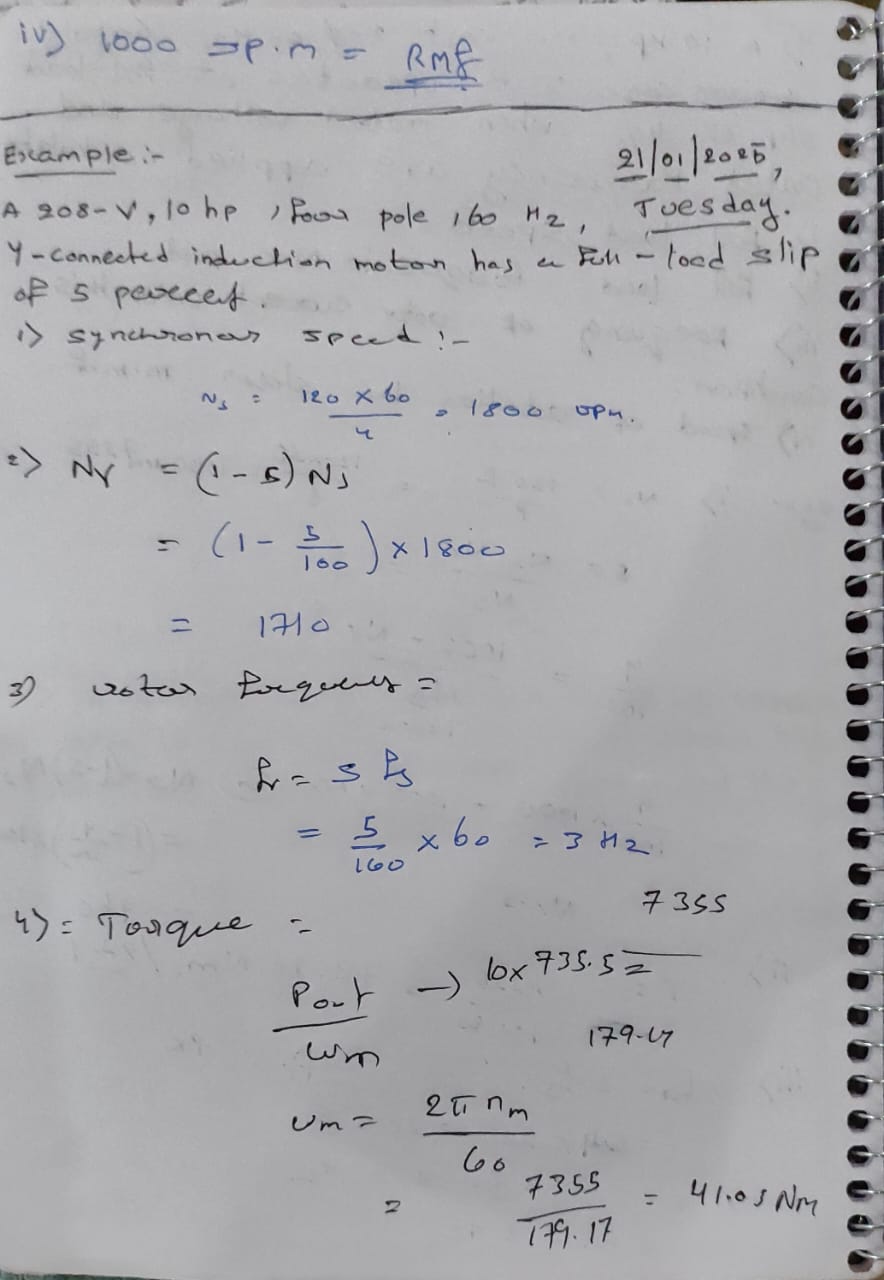 iv) 1000 r.p.m = RMf
Example :-
21/01/2025,
Tuesday.
A 208-V, 10 hp, four pole, 60 Hz,
Y-connected induction motor has a full-load slip
of 5 percent.
1) synchronous speed :-
Ns = 120 × 60 / 4 = 1800 rpm.
2) Nr = (1 - s) Ns
= (1 - 5/100) × 1800
= 1710
3) rotor frequency =
fr = s fs
= 5/100 × 60 = 3 Hz
4) = Torque =
7355
Pout / ωm → 10 × 735.5 =
179.17
ωm = 2π nm / 60
= 7355 / 179.17 = 41.05 Nm